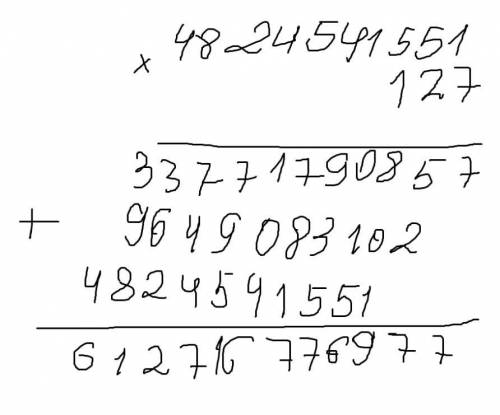 × 4824541551
127
33771790857
+ 9649083102
4824541551
612716776977